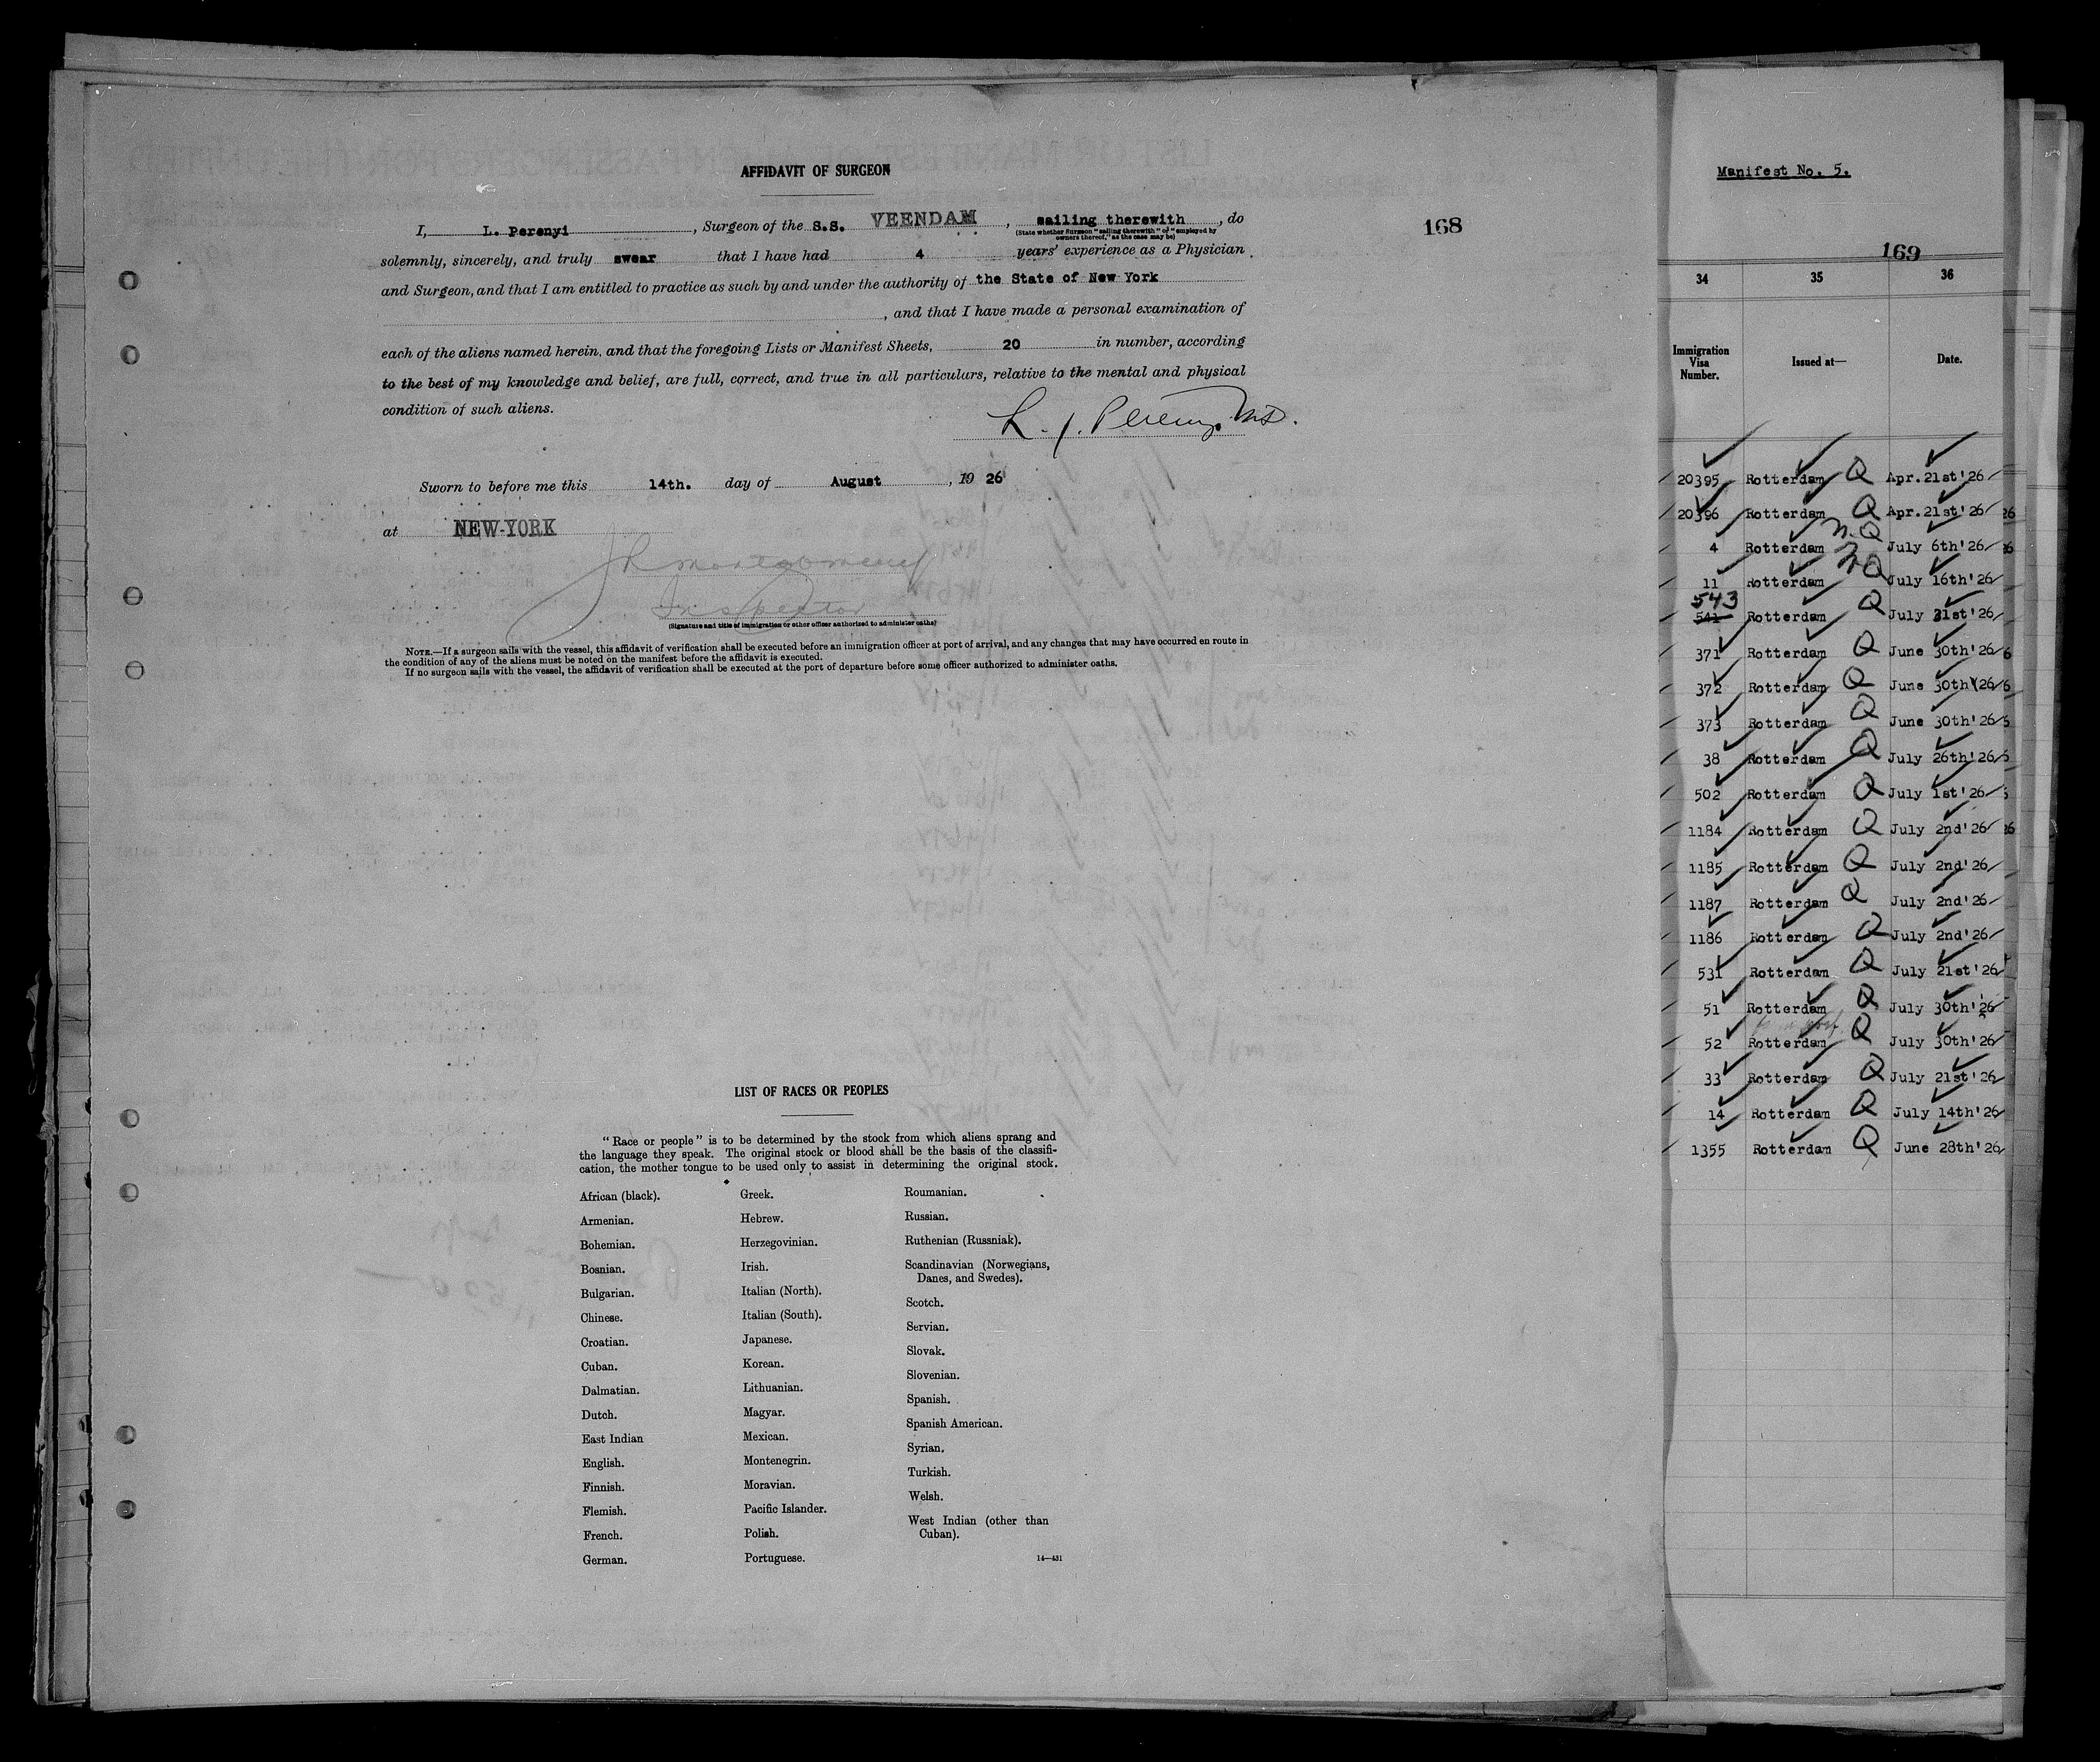 AFFIDAVIT OF SURGEON
I, L. Perenyi, Surgeon of the S.S. VEENDAM, sailing therewith, do
(State whether Surgeon "sailing therewith" or "employed by owners thereof," as the case may be)
solemnly, sincerely, and truly swear that I have had 4 years' experience as a Physician
and Surgeon, and that I am entitled to practice as such by and under the authority of the State of New York
, and that I have made a personal examination of
each of the aliens named herein, and that the foregoing Lists or Manifest Sheets, 20 in number, according
to the best of my knowledge and belief, are full, correct, and true in all particulars, relative to the mental and physical
condition of such aliens.
L. J. Perenyi MD.
Sworn to before me this 14th. day of August, 19 26
at NEW-YORK
Inspector
(Signature and title of immigration or other officer authorized to administer oaths)
NOTE.—If a surgeon sails with the vessel, this affidavit of verification shall be executed before an immigration officer at port of arrival, and any changes that may have occurred en route in
the condition of any of the aliens must be noted on the manifest before the affidavit is executed.
If no surgeon sails with the vessel, the affidavit of verification shall be executed at the port of departure before some officer authorized to administer oaths.
168
LIST OF RACES OR PEOPLES
"Race or people" is to be determined by the stock from which aliens sprang and
the language they speak. The original stock or blood shall be the basis of the classifi-
cation, the mother tongue to be used only to assist in determining the original stock.
African (black).
Armenian.
Bohemian.
Bosnian.
Bulgarian.
Chinese.
Croatian.
Cuban.
Dalmatian.
Dutch.
East Indian
English.
Finnish.
Flemish.
French.
German.
Greek.
Hebrew.
Herzegovinian.
Irish.
Italian (North).
Italian (South).
Japanese.
Korean.
Lithuanian.
Magyar.
Mexican.
Montenegrin.
Moravian.
Pacific Islander.
Polish.
Portuguese.
Roumanian.
Russian.
Ruthenian (Russniak).
Scandinavian (Norwegians,
Danes, and Swedes).
Scotch.
Servian.
Slovak.
Slovenian.
Spanish.
Spanish American.
Syrian.
Turkish.
Welsh.
West Indian (other than
Cuban).
14—431
Manifest No. 5.
169
34 35 36
Immigration Visa Number. Issued at— Date.
20395 Rotterdam Q Apr. 21st'26
20396 Rotterdam Q Apr. 21st'26
4 Rotterdam N.Q July 6th'26
11 Rotterdam NQ July 16th'26
543
541 Rotterdam Q July 31st'26
371 Rotterdam Q June 30th'26
372 Rotterdam Q June 30th'26
373 Rotterdam Q June 30th'26
38 Rotterdam Q July 26th'26
502 Rotterdam Q July 1st'26
1184 Rotterdam Q July 2nd'26
1185 Rotterdam Q July 2nd'26
1187 Rotterdam Q July 2nd'26
1186 Rotterdam Q July 2nd'26
531 Rotterdam Q July 21st'26
51 Rotterdam Q July 30th'26
52 Rotterdam Q July 30th'26
33 Rotterdam Q July 21st'26
14 Rotterdam Q July 14th'26
1355 Rotterdam Q June 28th'26